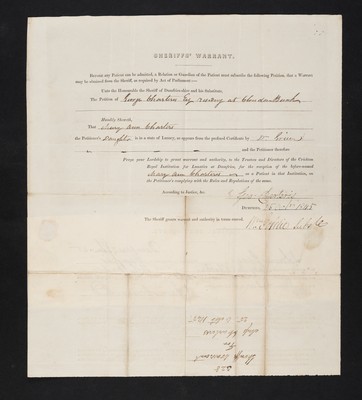 SHERIFFS' WARRANT.
BEFORE any Patient can be admitted, a Relative or Guardian of the Patient must subscribe the following Petition, that a Warrant
may be obtained from the Sheriff, as required by Act of Parliament:—
Unto the Honourable the Sheriff of Dumfriesshire and his Substitutes,
The Petition of George Charteris Esq residing at
Humbly Sheweth,
That Mary Ann Charteris
the Petitioner's Daughter is in a state of Lunacy, as appears from the prefixed Certificate by Dr
and the Petitioner therefore
Prays your Lordship to grant warrant and authority, to the Trustees and Directors of the Crichton
Royal Institution for Lunatics at Dumfries, for the reception of the before-named
Mary Ann Charteris as a Patient in that Institution, on
the Petitioner's complying with the Rules and Regulations of the same.
According to Justice, &c.
Geo Charteris
DUMFRIES, 25 Octr 1845
The Sheriff grants warrant and authority in terms craved.
528
Warrant
For
Charteris
25 Octr 1845